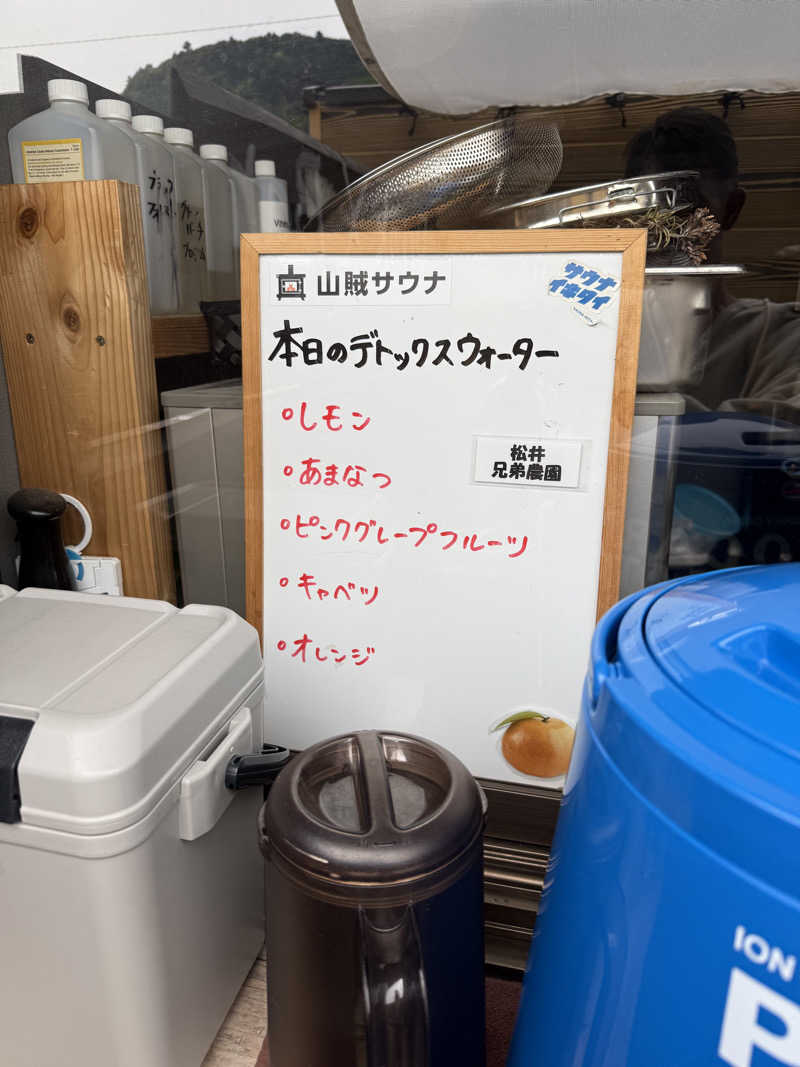 山賊サウナ
サウナ
イキタイ
本日のデトックスウォーター
・レモン
・あまなつ
松井
兄弟農園
・ピンクグレープフルーツ
・キャベツ
・オレンジ
ION
P